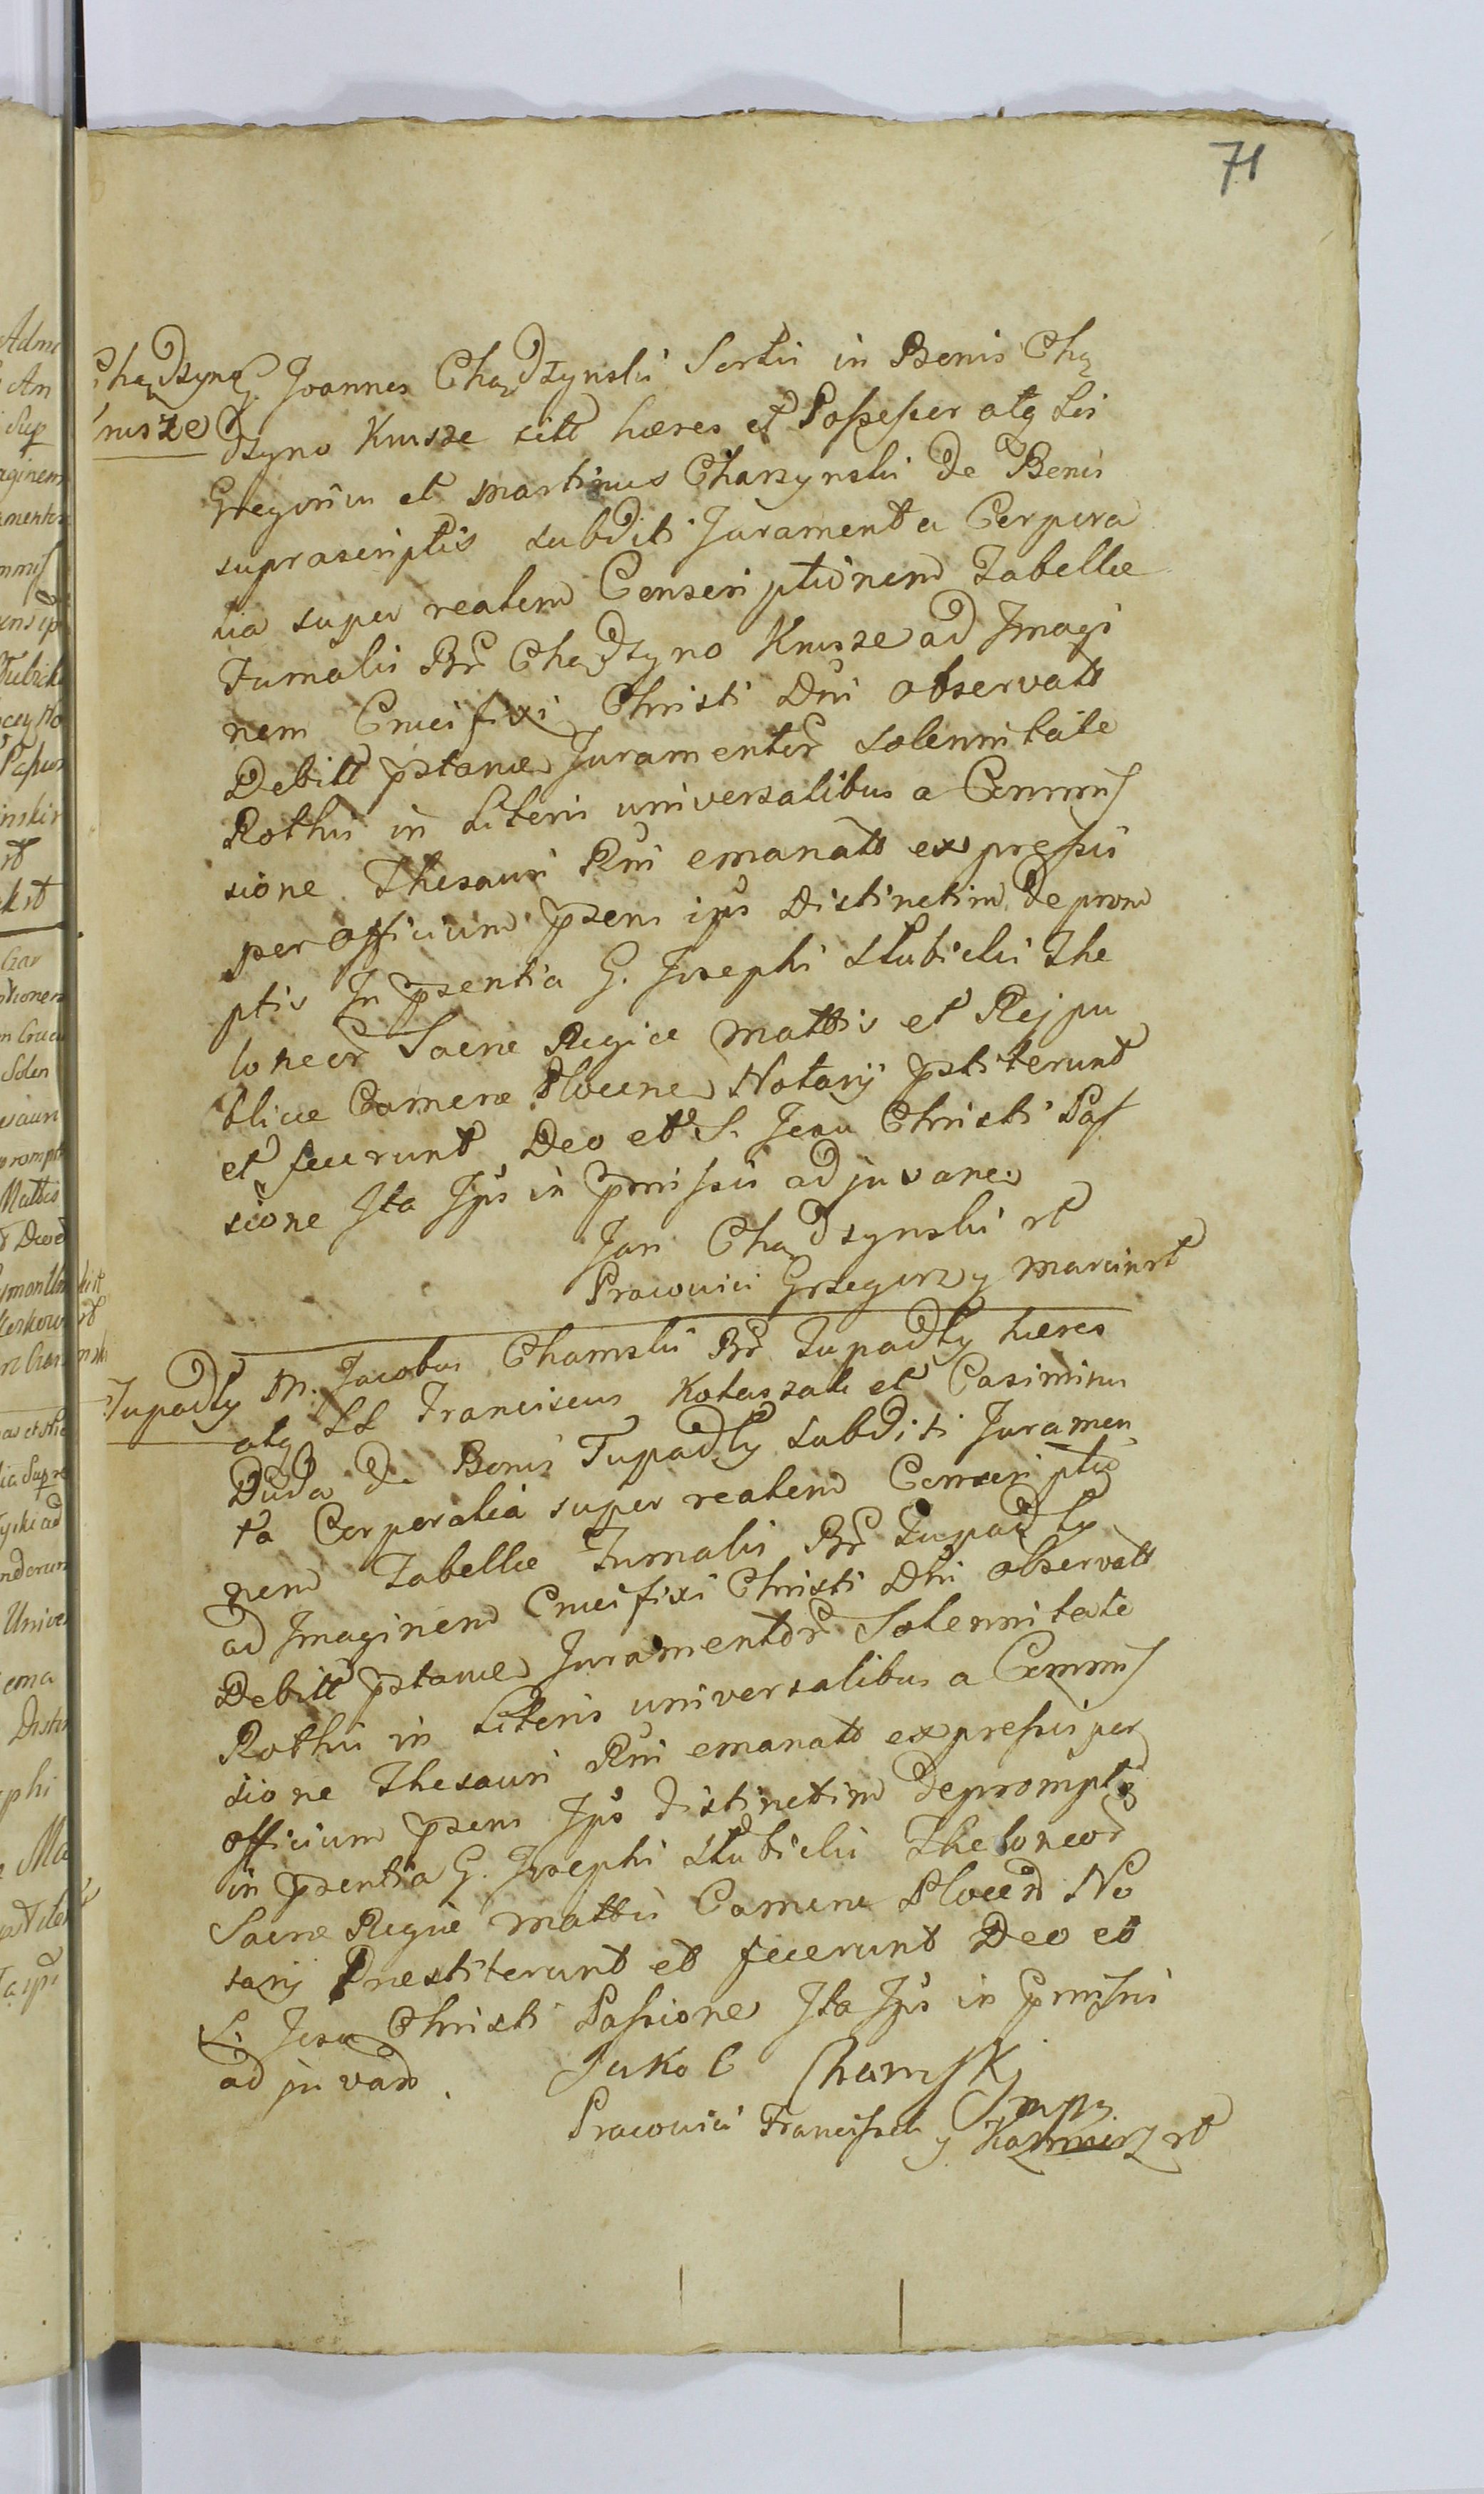 71
Chądzyno
Krusze
G. Joannes Chądzynski Sortis in Bonis Chą
dzyno Krusze sitt hæres et Possessor atq LLi
Gregorius et Martinus Charzynski de Bonis
suprascriptis subditi Juramenta Corpora
lia super realem Conscriptionem Tabellæ
Fumalis Br Chądzyno Krusze ad Imagi
nem Crucifixi Christi Dni observatt
Debitt pstand Juramentor solennitate
Rothis in Literis universalibus a Commis
sione Thesauri Rni emanatt expressis
per officium psens ips distinctim deprom
ptis In psentia G. Josephi Słubicki The
loneor Sacræ Regiæ Mattis et Reipu
blicæ Cameræ Plocen Notarij pstiterunt
et fecerunt Deo et S. Jesu Christi Pas
sione Ita Ips in pmissis adjuvane
Jan Chądzynski rt
Pracowici Grzegorz y Marcin rt
Tupadły
M. Jacobus Chamski Br Tupadły hæres
atq LL Franciscus Kotaszak et Casimirus
Duda de Bonis Tupadły subditi Juramen
ta Corporalia super realem Conscriptio
nem Tabellæ Fumalis Br Tupadły
ad Imaginem Crucifixi Christi Dni observatt
Debitt pstand Juramentor Solennitate
Rothis in Literis universalibus a Commis
sione Thesauri Rni emanatt expressis per
officium psens Ips distinctim depromptis
in psentia G. Josephi Słubicki Theloneor
Sacræ Regiæ Mattis Cameræ Plocen No
tarij Præstiterunt et fecerunt Deo et
S. Jesu Christi Passione Ita Ips in pmissis
adjuvan.
Jakob Chamski
mpp
Pracowici Franciszek y Kazimierz rt